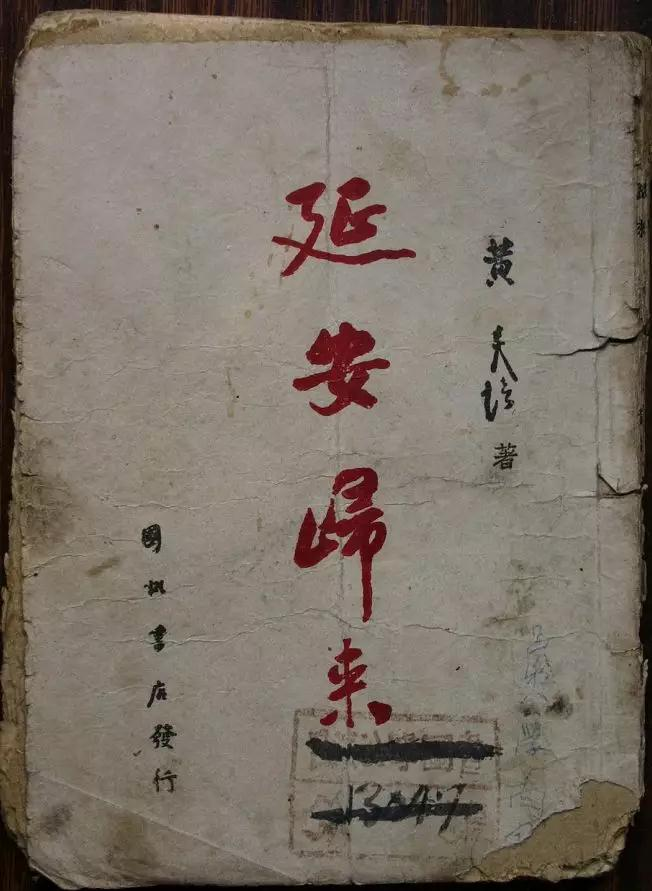 黄炎培
著
延安歸来
國訊書店發行
13047